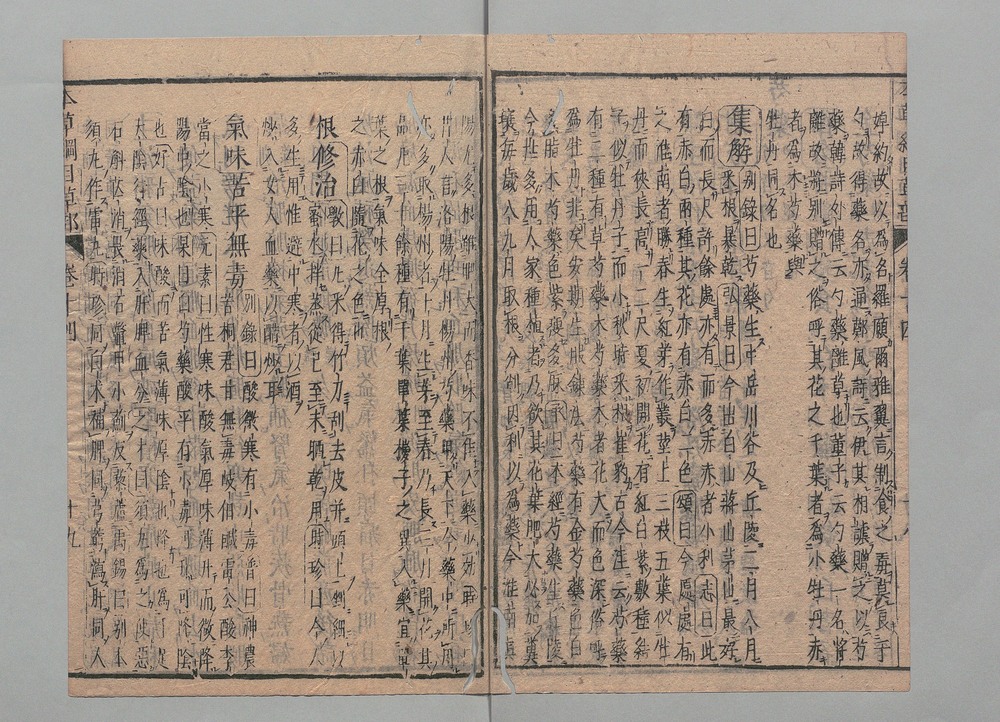 綽約故以爲名羅願爾雅翼言制食之毒莫良于
勺故得藥名亦通鄭風詩云伊其相謔贈之以芍
藥韓詩外傳云勺藥離草也董子云勺藥一名將
離故將別贈之俗呼其花之千葉者爲小牡丹赤
者爲木芍藥與
牡丹同名也
集解別錄曰芍藥生中岳川谷及丘陵二月八月
采根暴乾弘景曰今出白山蔣山茅山最好
白而長尺許餘處亦有而多赤赤者小利志曰此
有赤白兩種其花亦有赤白二色頌曰今處處有
之淮南者勝春生紅芽作叢莖上三枝五葉似牡
丹而狹長高一二尺夏初開花有紅白紫數種結
子似牡丹子而小秋時采根崔豹古今注云芍藥
有三種有草芍藥木芍藥木者花大而色深俗呼
爲牡丹非矣安期生服鍊法芍藥有金芍藥色白
多脂木芍藥色紫瘦多脉承曰本經芍藥生丘陵
今世多用人家種植者乃欲其花葉肥大必加糞
壤每歲八九月取根分削因利以爲藥今淮南真
陽尤多根雖肥大而香味不佳入藥少效時珍
曰昔人言洛陽牡丹揚州芍藥甲天下今藥中所用
亦多取揚州者十月生芽至春乃長三月開花其
品凡三十餘種有千葉單葉樓子之異入藥宜單
葉之根氣味全厚根
之赤白隨花之色也
根修治斅曰凡采得竹刀刮去皮幷頭土剉細以
蜜水拌蒸從巳至未晒乾用時珍曰今人
多生用惟避中寒者以酒
炒入女人血藥以醋炒耳
氣味苦平無毒別錄曰酸微寒有小毒普曰神農
苦桐君甘無毒岐伯鹹雷公酸李
當之小寒元素曰性寒味酸氣厚味薄升而微降
陽中陰也杲曰白芍藥酸平有小毒可升可降陰
也好古曰味酸而苦氣薄味厚陰也降也爲手足
太陰行經藥入肝脾血分之才曰須丸爲之使惡
石斛芒消畏消石鱉甲小薊反藜蘆禹錫曰別本
須丸作雷丸時珍曰同白朮補脾同芎藭瀉肝同人
本草綱目草部 卷十四 十九